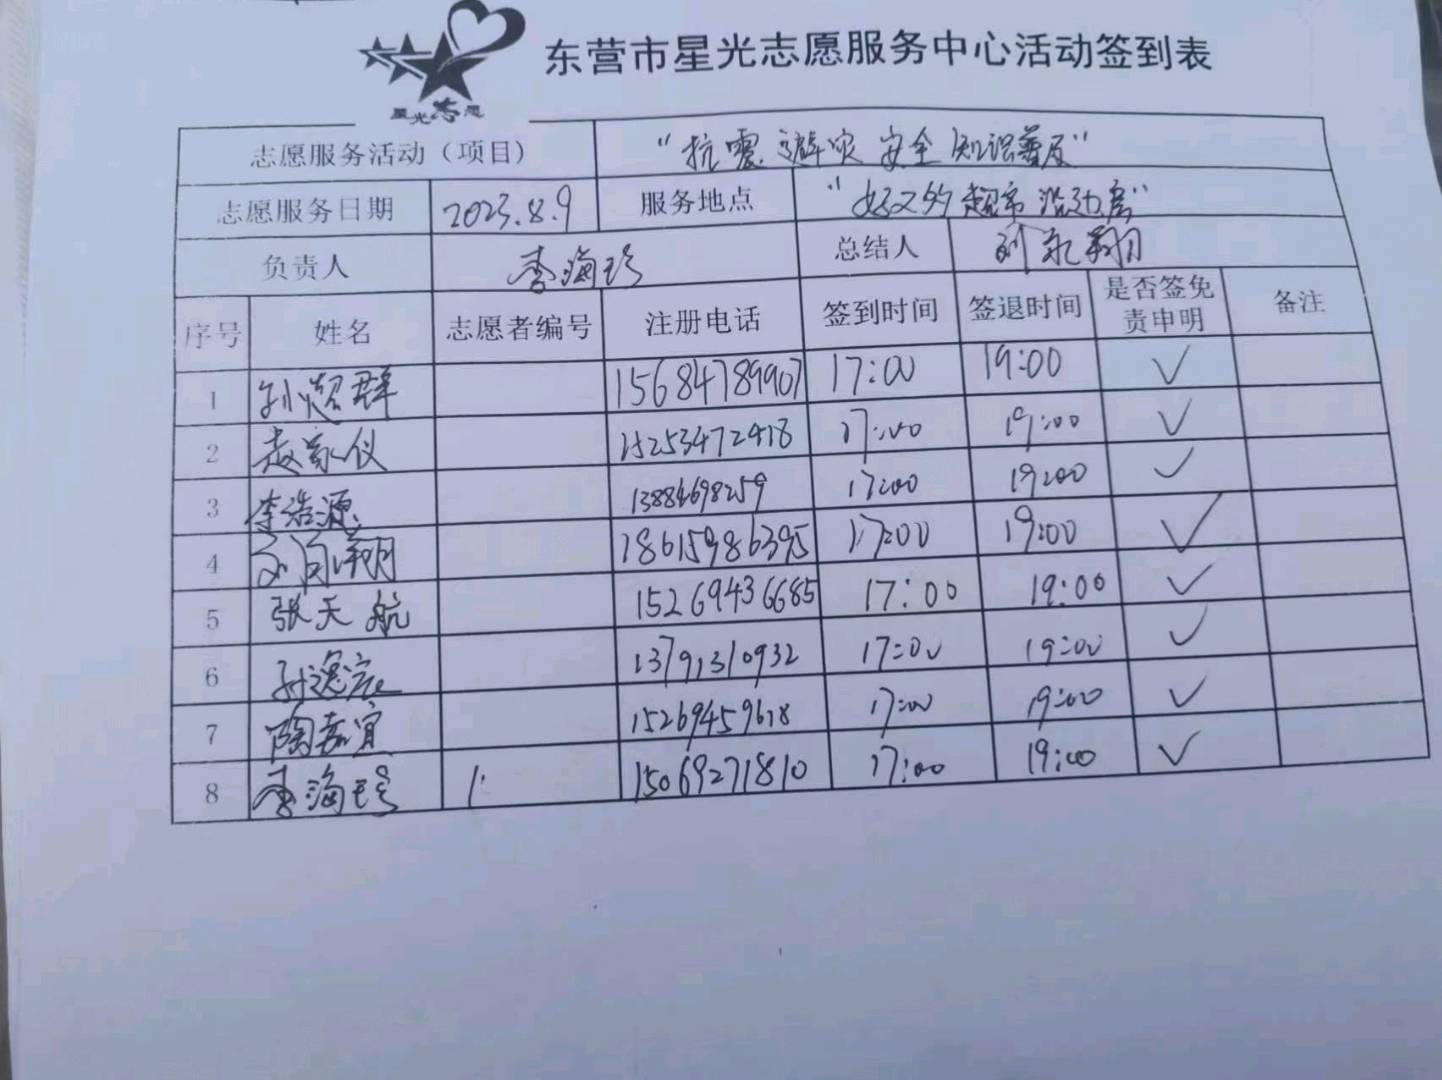 星光志愿
东营市星光志愿服务中心活动签到表
志愿服务活动（项目） "抗震避灾安全知识普及"
志愿服务日期 2023.8.9 服务地点 "好又多超市活动房"
负责人 李海珍 总结人 刘永翔
序号 姓名 志愿者编号 注册电话 签到时间 签退时间 是否签免责申明 备注
1 孙超群 15684789907 17:00 19:00 ✓
2 赵家仪 15253472418 17:00 19:00 ✓
3 李浩源 13884698259 17:00 19:00 ✓
4 18615986395 17:00 19:00 ✓
5 张天航 15269436685 17:00 19:00 ✓
6 孙逸宸 13791310932 17:00 19:00 ✓
7 陶嘉宜 15269459618 17:00 19:00 ✓
8 李海珍 15069271810 17:00 19:00 ✓